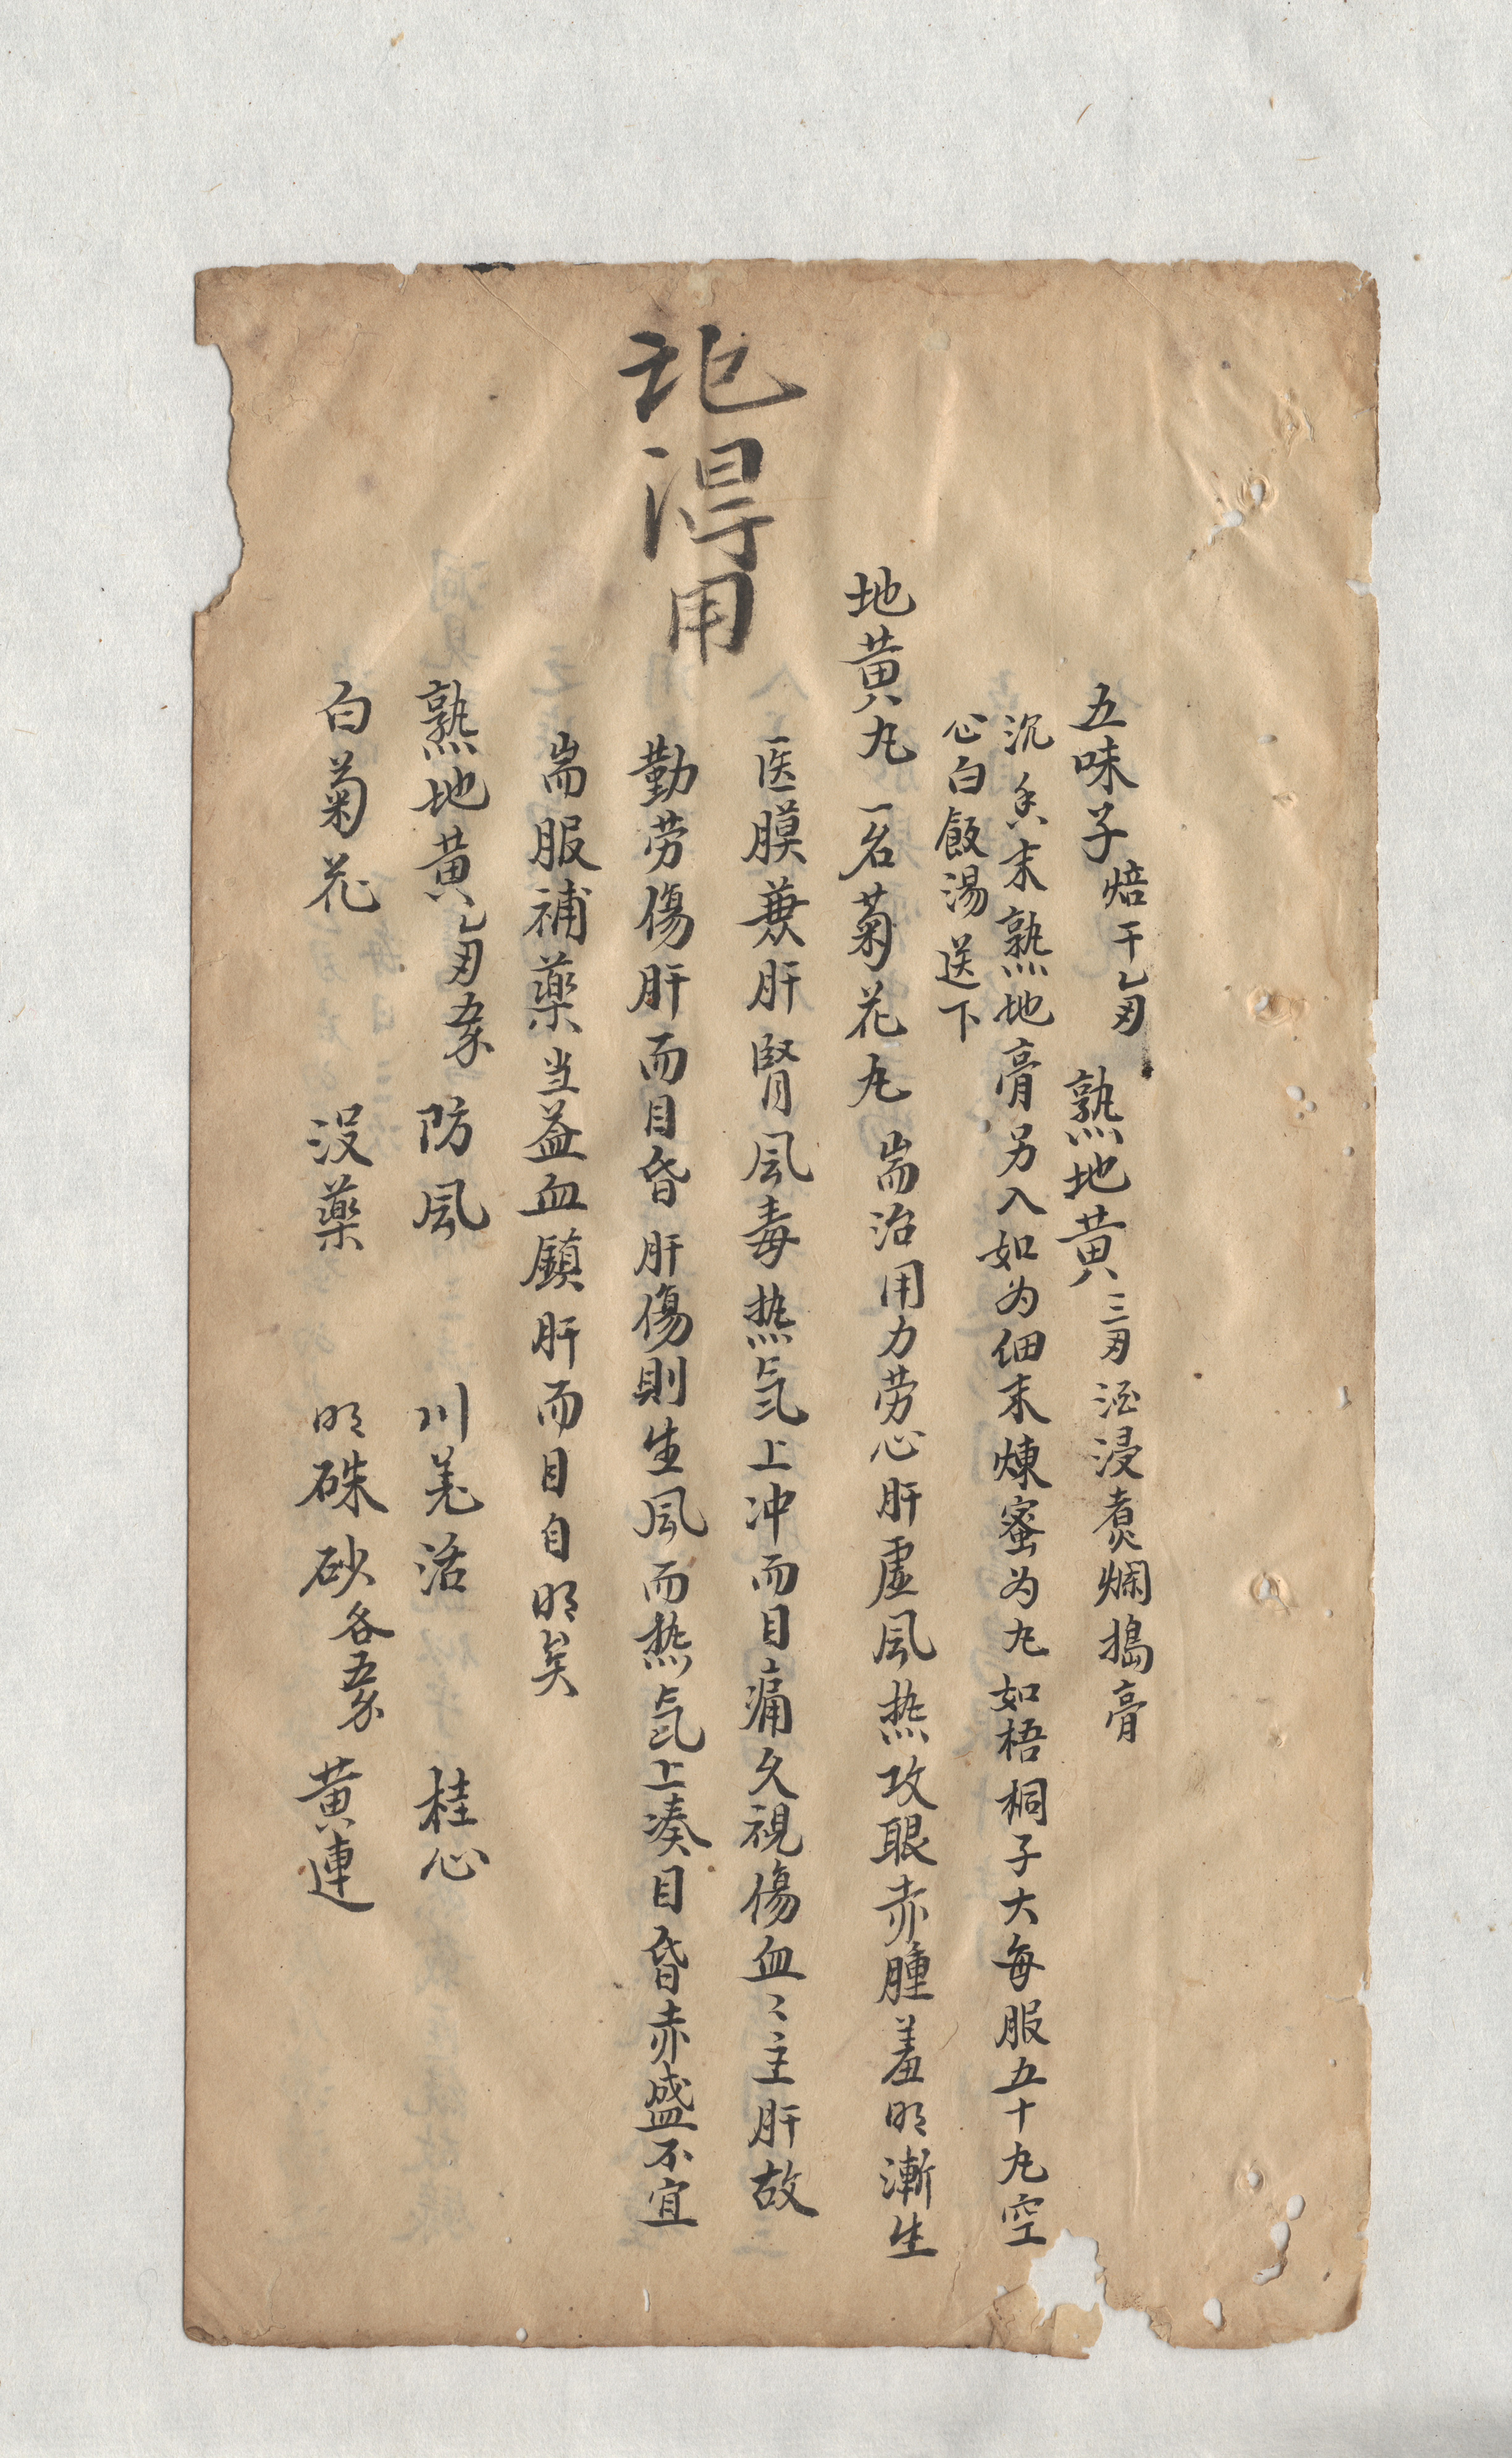 五味子焙干乙両 熟地黄三両酒浸煮爛搗膏
沉香末熟地膏另入如为细末煉蜜为丸如梧桐子大每服五十丸空
心白飯湯送下
地黄丸 一名菊花丸 耑治用力劳心肝虚風热攻眼赤腫羞明漸生
医膜兼肝腎風毒热気上冲而目痛久視傷血〻主肝故
勤劳傷肝而目昏肝傷則生風而热気上凑目昏赤盛不宜
耑服補薬当益血鎮肝而目自明矣
熟地黄乙両五分 防風 川羌活 桂心
白菊花 没薬 明硃砂各五分 黄連
得用